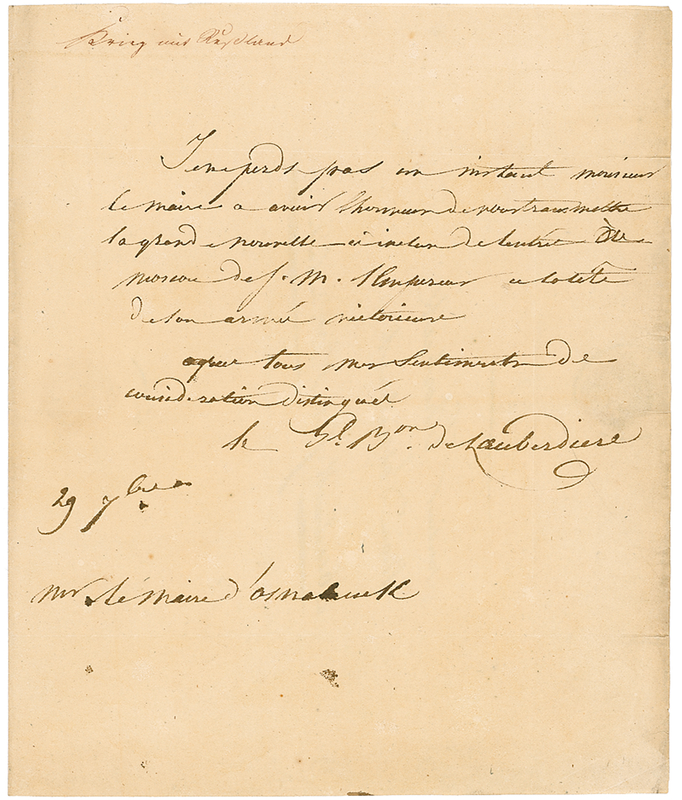 Krieg mit Rußland
Je ne perds pas un instant monsieur
le maire a avoir l'honneur de vous transmettre
la grande nouvelle ci incluse de l'entrée de
moscou de S. M. l'Empereur a la tête
de son armée victorieuse
agréez tous mes sentiments de
consideration distinguée
le Gl Bon de Lauberdiere
29 7bre
mr le Maire d'osnabruck